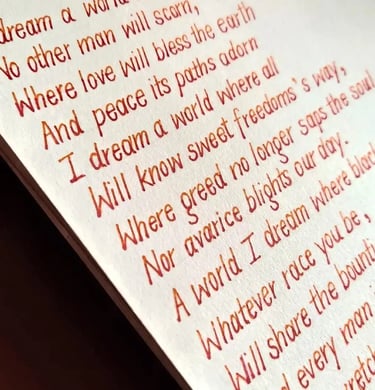 dream a world
No other man will scarn,
Where love will bless the earth
And peace its paths adorn
I dream a world where all
Will know sweet freedoms's way,
Where greed no longer saps the soul
Nor avarice blights our day.
A world I dream where
Whatever race you be,
Will share the
every man